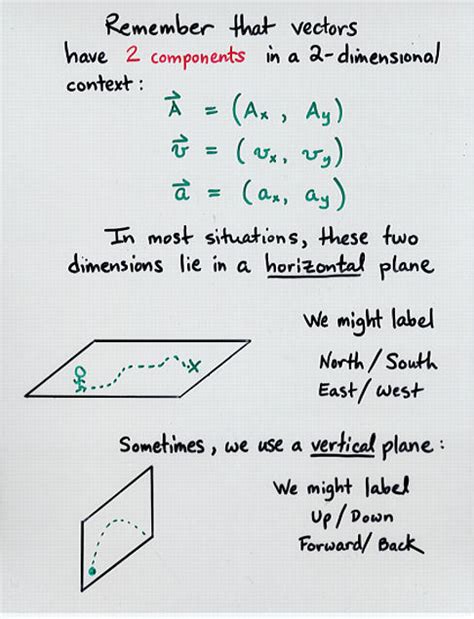 Remember that vectors
have 2 components in a 2-dimensional
context:
A⃗ = (Aₓ, Aᵧ)
v⃗ = (vₓ, vᵧ)
a⃗ = (aₓ, aᵧ)
In most situations, these two
dimensions lie in a horizontal plane
We might label
North/South
East/West
Sometimes, we use a vertical plane:
We might label
Up/Down
Forward/Back